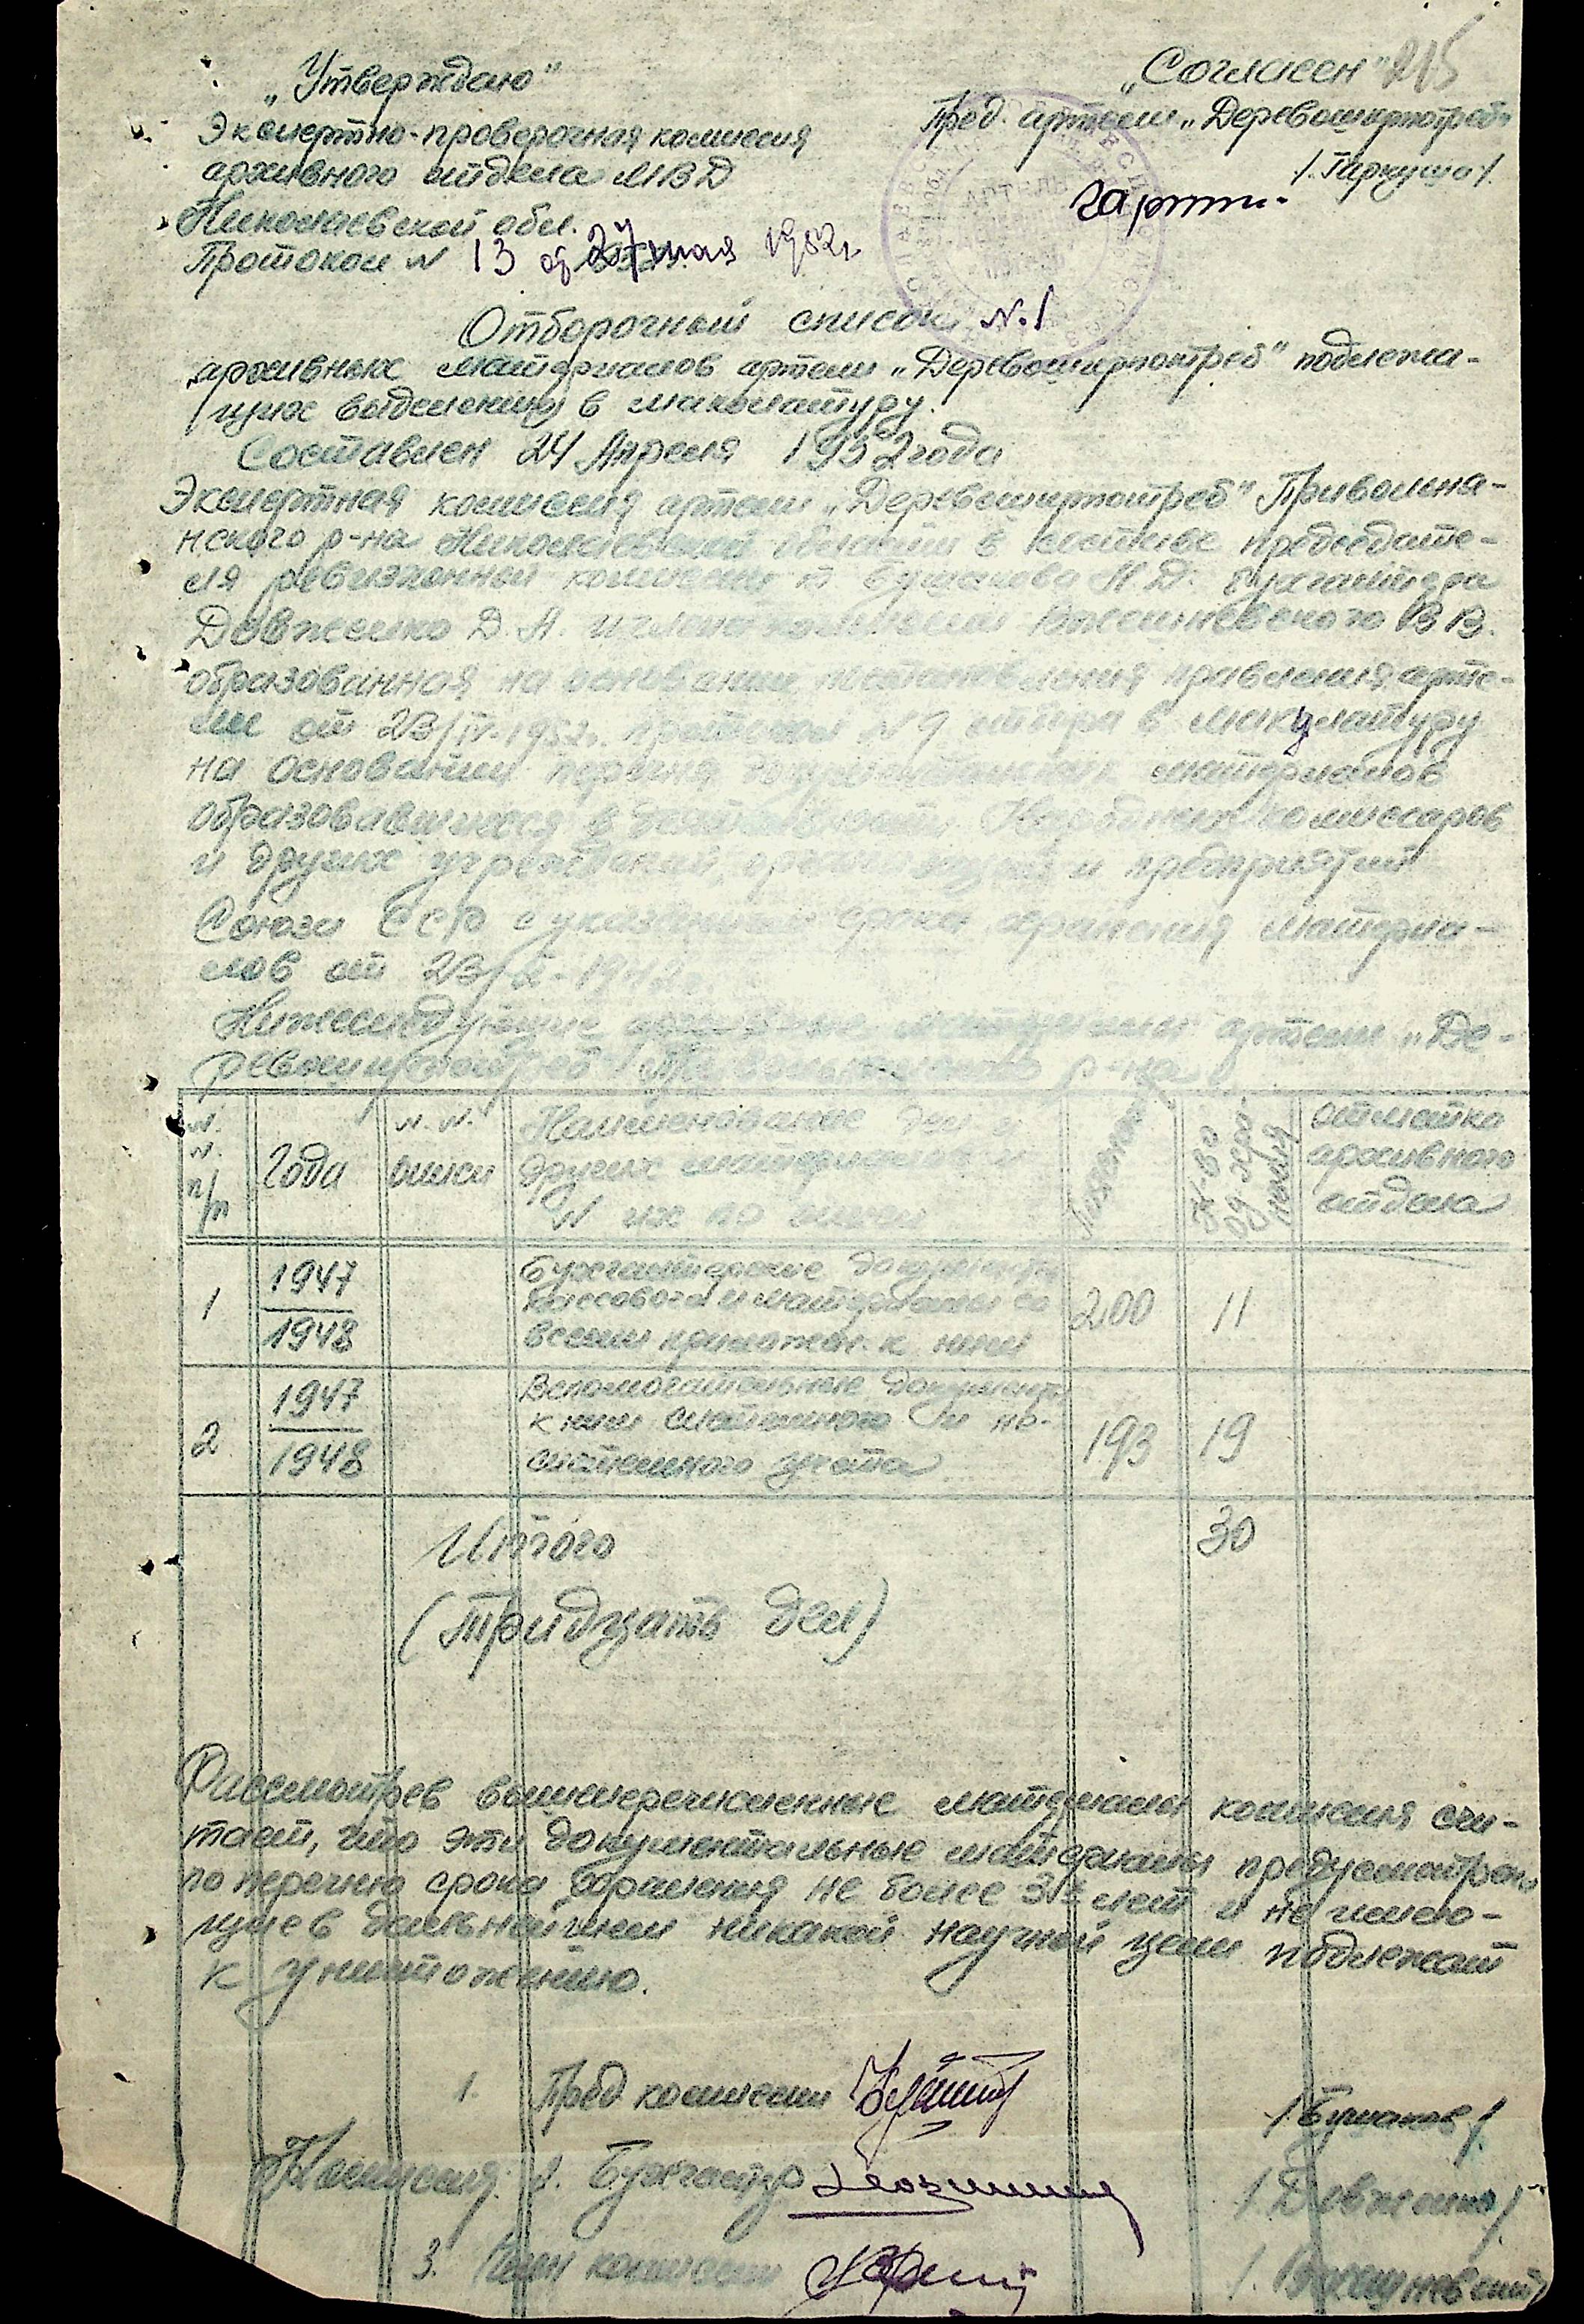 „Утверждаю"
Экспертно-проверочная комиссия
архивного отдела МВД
Николаевской обл.
Протокол N 13 от 27 мая 1952 г.
„Согласен" 215
Пред. артели „Деревоширпотреб"
/Гаркуша/.
АРТЕЛЬ
Отборочный список N. 1
архивных материалов артели „Деревоширпотреб" подлежа-
щих выделению в макулатуру.
Составлен 24 Апреля 1952 года
Экспертная комиссия артели „Деревоширпотреб" Привольна-
нского р-на Николаевской области в составе председате-
ля ревизионной комиссии т. Бушакова Н.Д. бухгалтера
Довженко Д. А. и члена комиссии В.В.
образованная на основании постановления правления арте-
ли от 23/IV-1952г. протокол N 9 отбора в макулатуру
на основании перечня материалов
образовавшихся в Народных комиссаров
и других учреждений, организаций и предприятий
Союза ССР с указанием срока хранения материа-
лов от
Нижеследующие архивные материалы артели „Де-
ревоширпотреб" р-на
N. N. п/п
Года
N. N. описи
Наименование дел и
других материалов и
N их по описи
К-во ед. хранения
отметка
архивного
отдела
1
1947
1948
Бухгалтерские документы
кассового и материалы со
всеми приложен. к ним
200
11
2
1947
1948
Вспомогательные документы
к ним системного и не-
системного учета
193
19
Итого
30
(Тридцать дел)
Рассмотрев вышеперечисленные материалы комиссия счи-
тает, что эти документальные материалы предусмотрены
по перечню срока хранения не более 3х лет и не имею-
щие в дальнейшем никакой научной цели подлежат
к уничтожению.
1. Пред комиссии
/Бушаков/.
Комиссия: 2. Бухгалтер
/Довженко/
3. Член комиссии